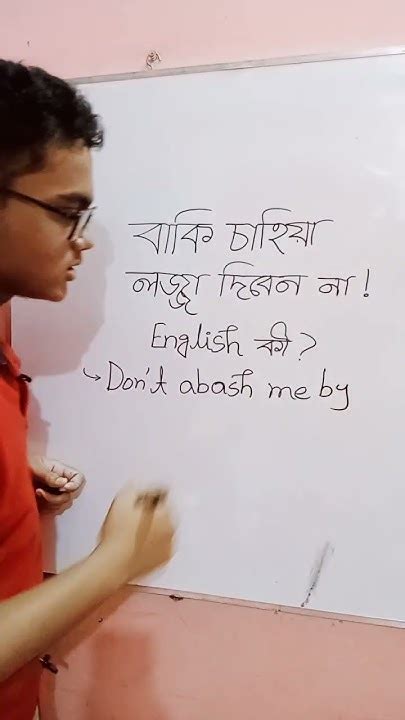 বাকি চাহিয়া
লজ্জা দিবেন না!
English কী?
↳ Don't abash me by